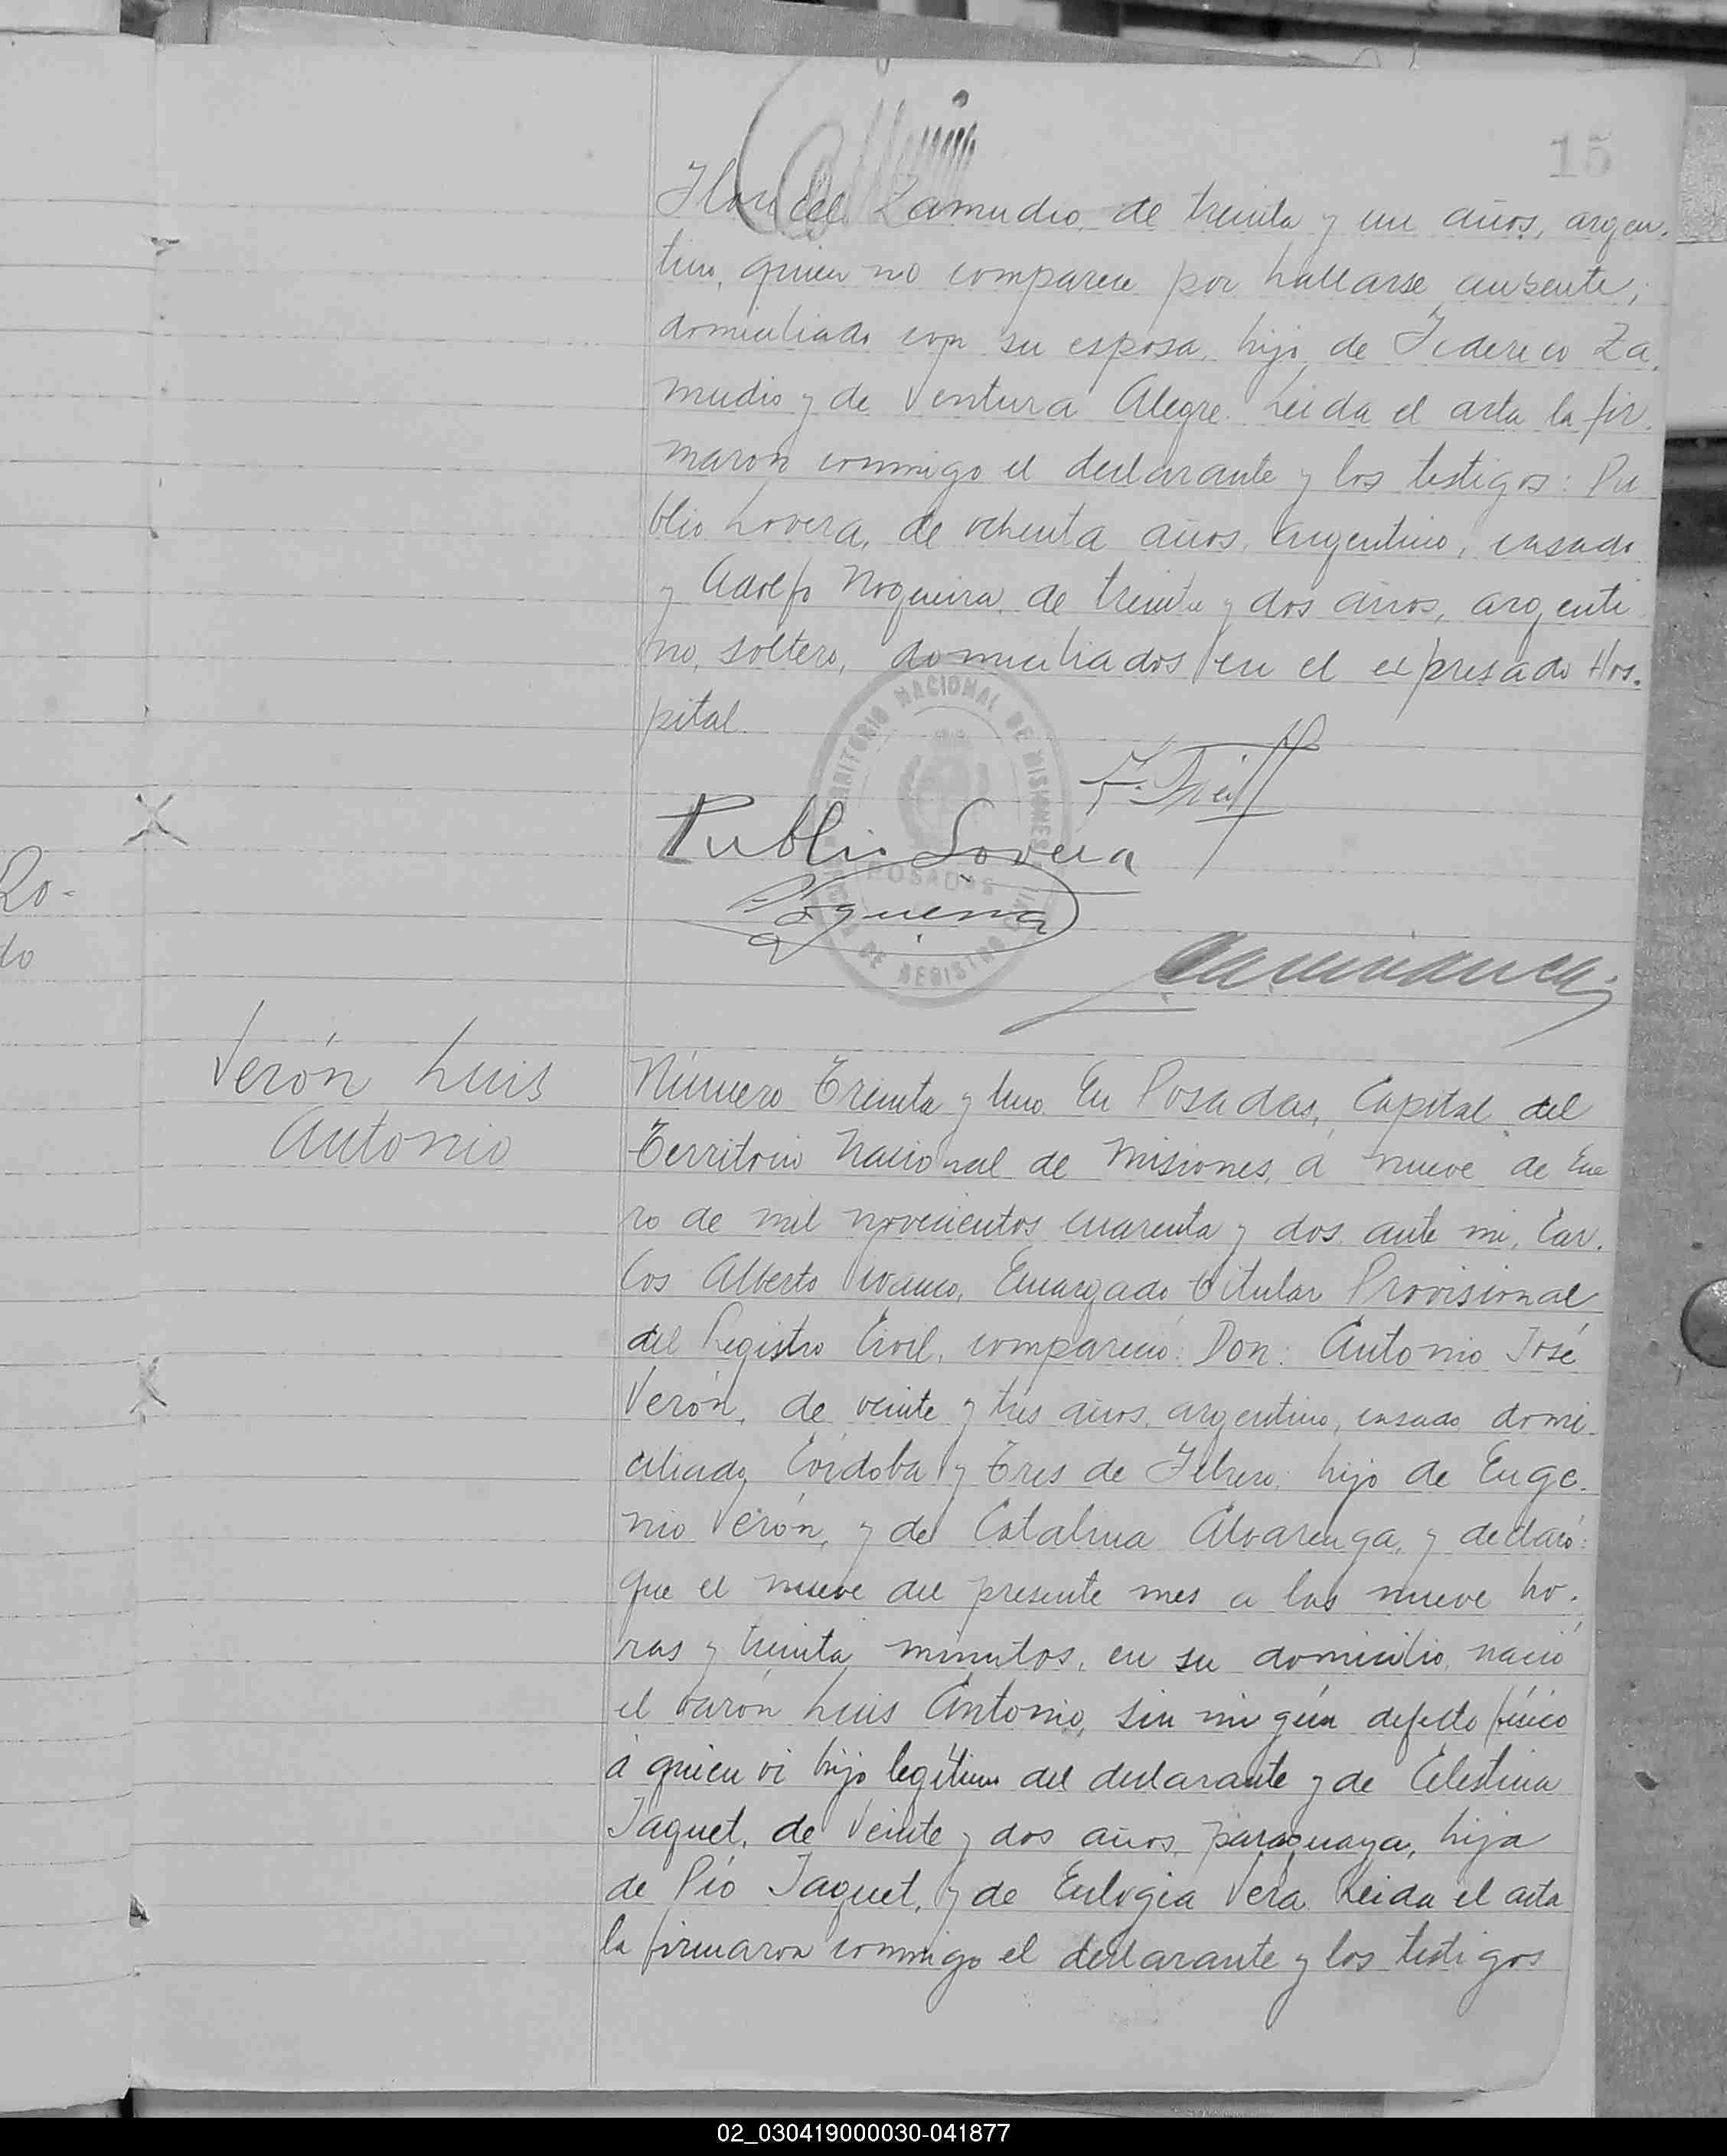 15
Zamudio, de treinta y un años, argen-
tino, quien no comparece por hallarse ausente,
domiciliado con su esposa, hijo de Federico Za-
mudio y de Ventura Alegre. Leida el acta la fir-
maron conmigo el declarante y los testigos: Pu
blio Lovera, de ochenta años, argentino, casado
y Adolfo Noqueira, de treinta y dos años, argenti
no, soltero, domiciliados en el expresado Hos-
pital.
TERRITORIO NACIONAL DE MISIONES
POSADAS
DE REGISTRO CIVIL
Publio Lovera
Noqueira
Ro-
do
Verón Luis
Antonio
Número Treinta y Uno. En Posadas, Capital del
Territorio Nacional de Misiones, á nueve de Ene
ro de mil novecientos cuarenta y dos, ante mi, Car-
los Alberto Encargado titular Provisional
del Registro Civil, compareció: Don: Antonio José
Verón, de veinte y tres años, argentino, casado, domi-
ciliado, Córdoba y Tres de Febrero, hijo de Euge-
nio Verón, y de Catalina Alvarenga, y declaró:
que el nueve del presente mes a las nueve ho-
ras y treinta minutos, en su domicilio, nació
el varón Luis Antonio, sin ningún defecto físico
á quien vi hijo legítimo del declarante y de Celestina
Jaquet, de veinte y dos años, paraguaya, hija
de Pío Jaquet, y de Eulogia Vera. Leida el acta
la firmaron conmigo el declarante y los testigos
02_030419000030-041877